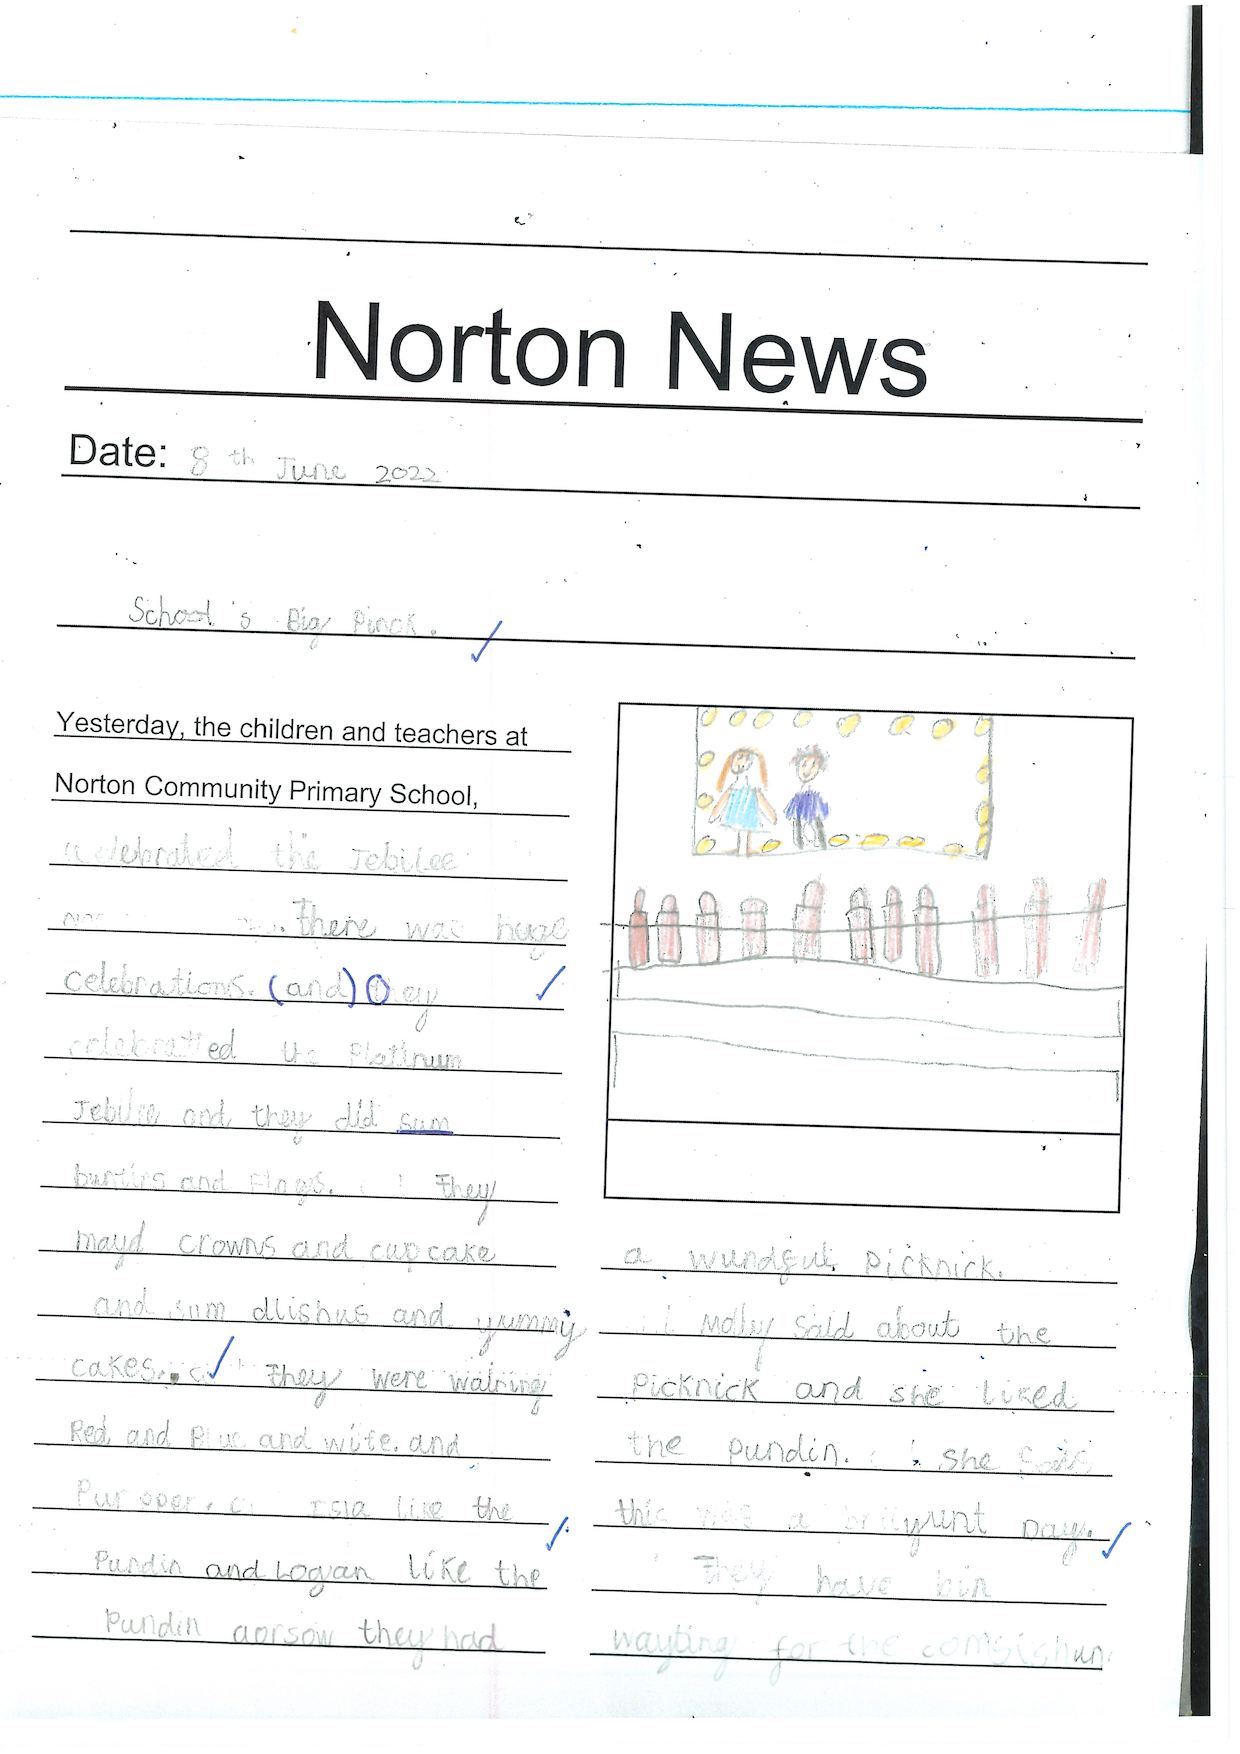 Norton News
Date: 8th June 2022
School's Big Pinck.
Yesterday, the children and teachers at
Norton Community Primary School,
celebrated the Jebilee
. There was huge
celebrations. (and) They
celebratted the Platinum
Jebilee and they did sum
buntins and Flags. They
mayd crowns and cupcake
and sum dlishus and yummy
cakes. They were walring
Red and Blue and wite. and
Isla like the
Pundin and Logan like the
Pundin aorsow they had
a wundful picknick.
Molly said about the
Picknick and she liked
the pundin. She
this was a brillyunt Day.
They have bin
wayting for the comsishun